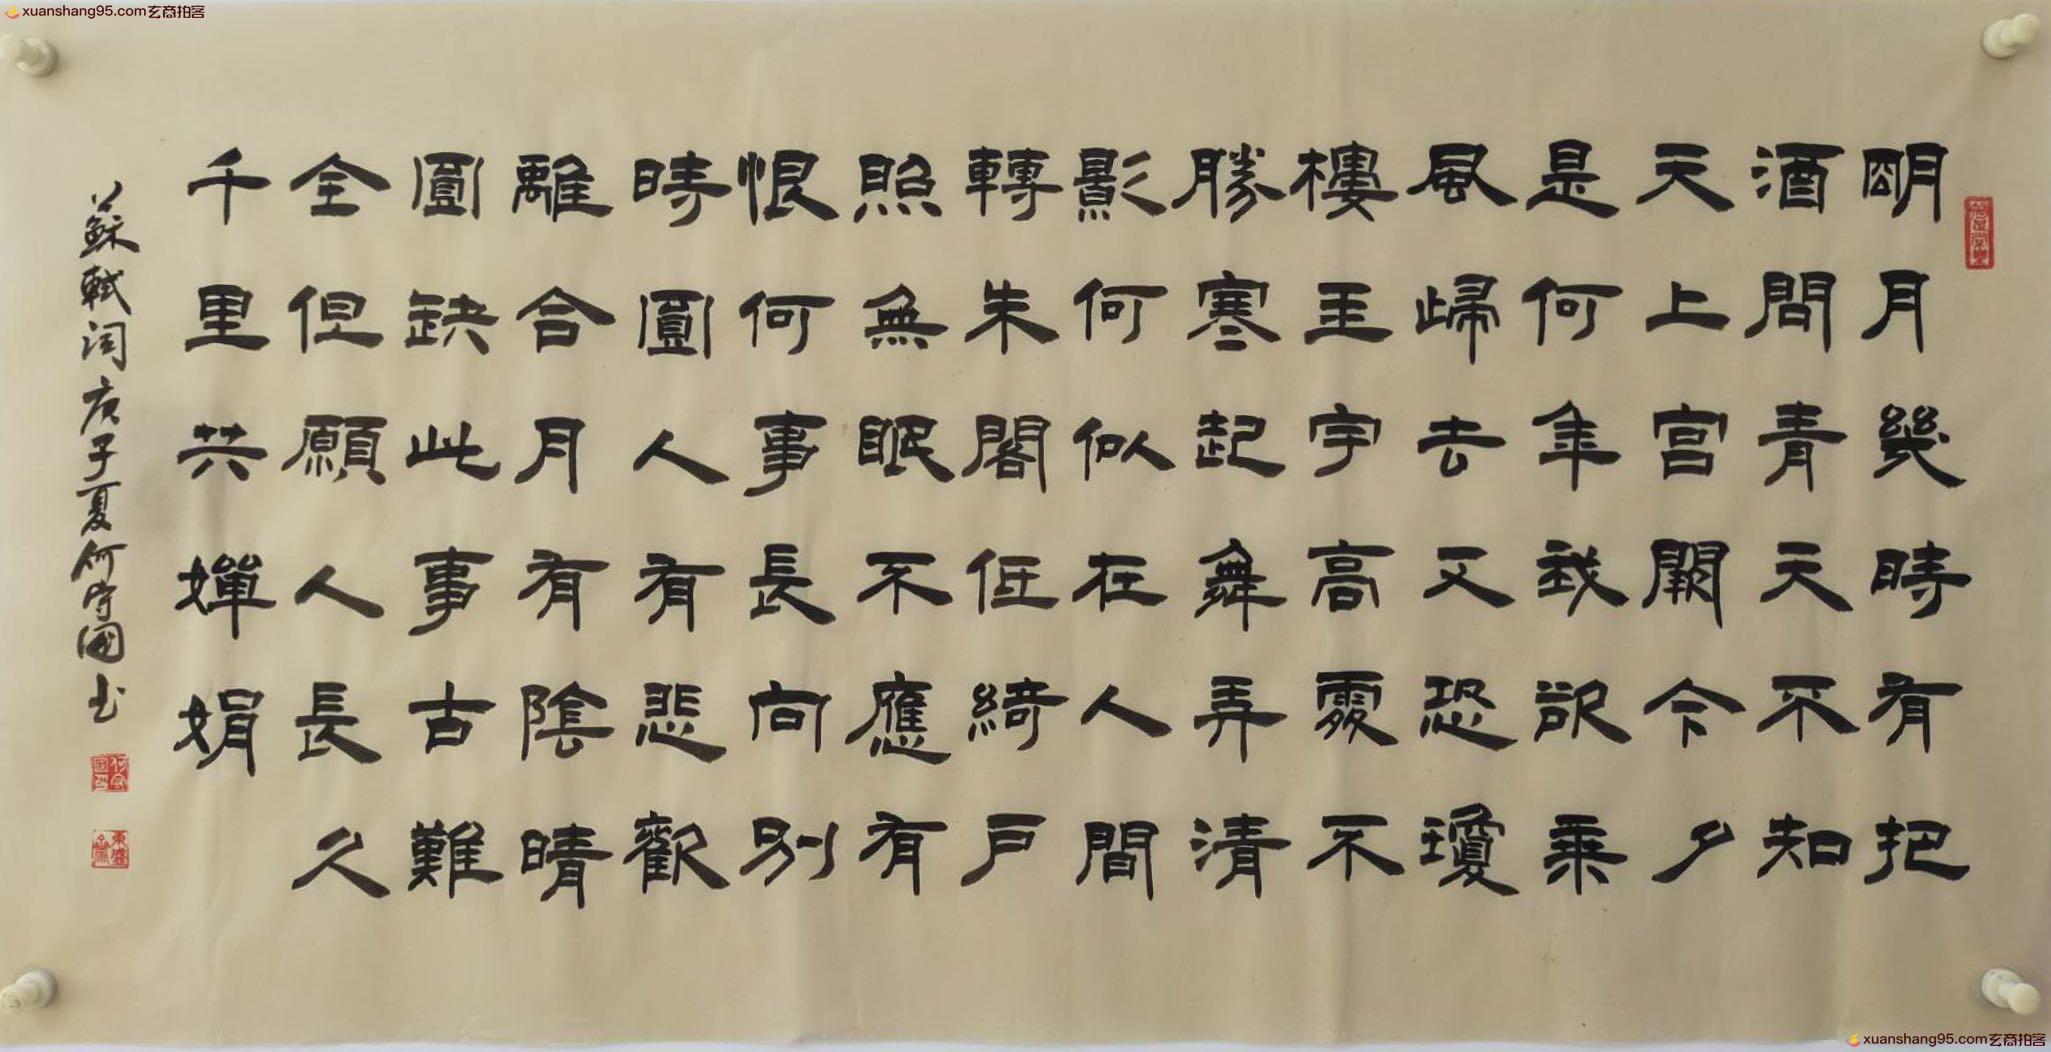 明月幾時有把
酒問青天不知
天上宫闕今夕
是何年我欲乘
風歸去又恐瓊
樓玉宇高處不
勝寒起舞弄清
影何似在人間
轉朱閣低綺户
照無眠不應有
恨何事長向别
時圓人有悲歡
離合月有陰晴
圓缺此事古難
全但願人長久
千里共嬋娟
蘇軾词庚子夏何守國书
xuanshang95.com玄商拍客
xuanshang95.com玄商拍客